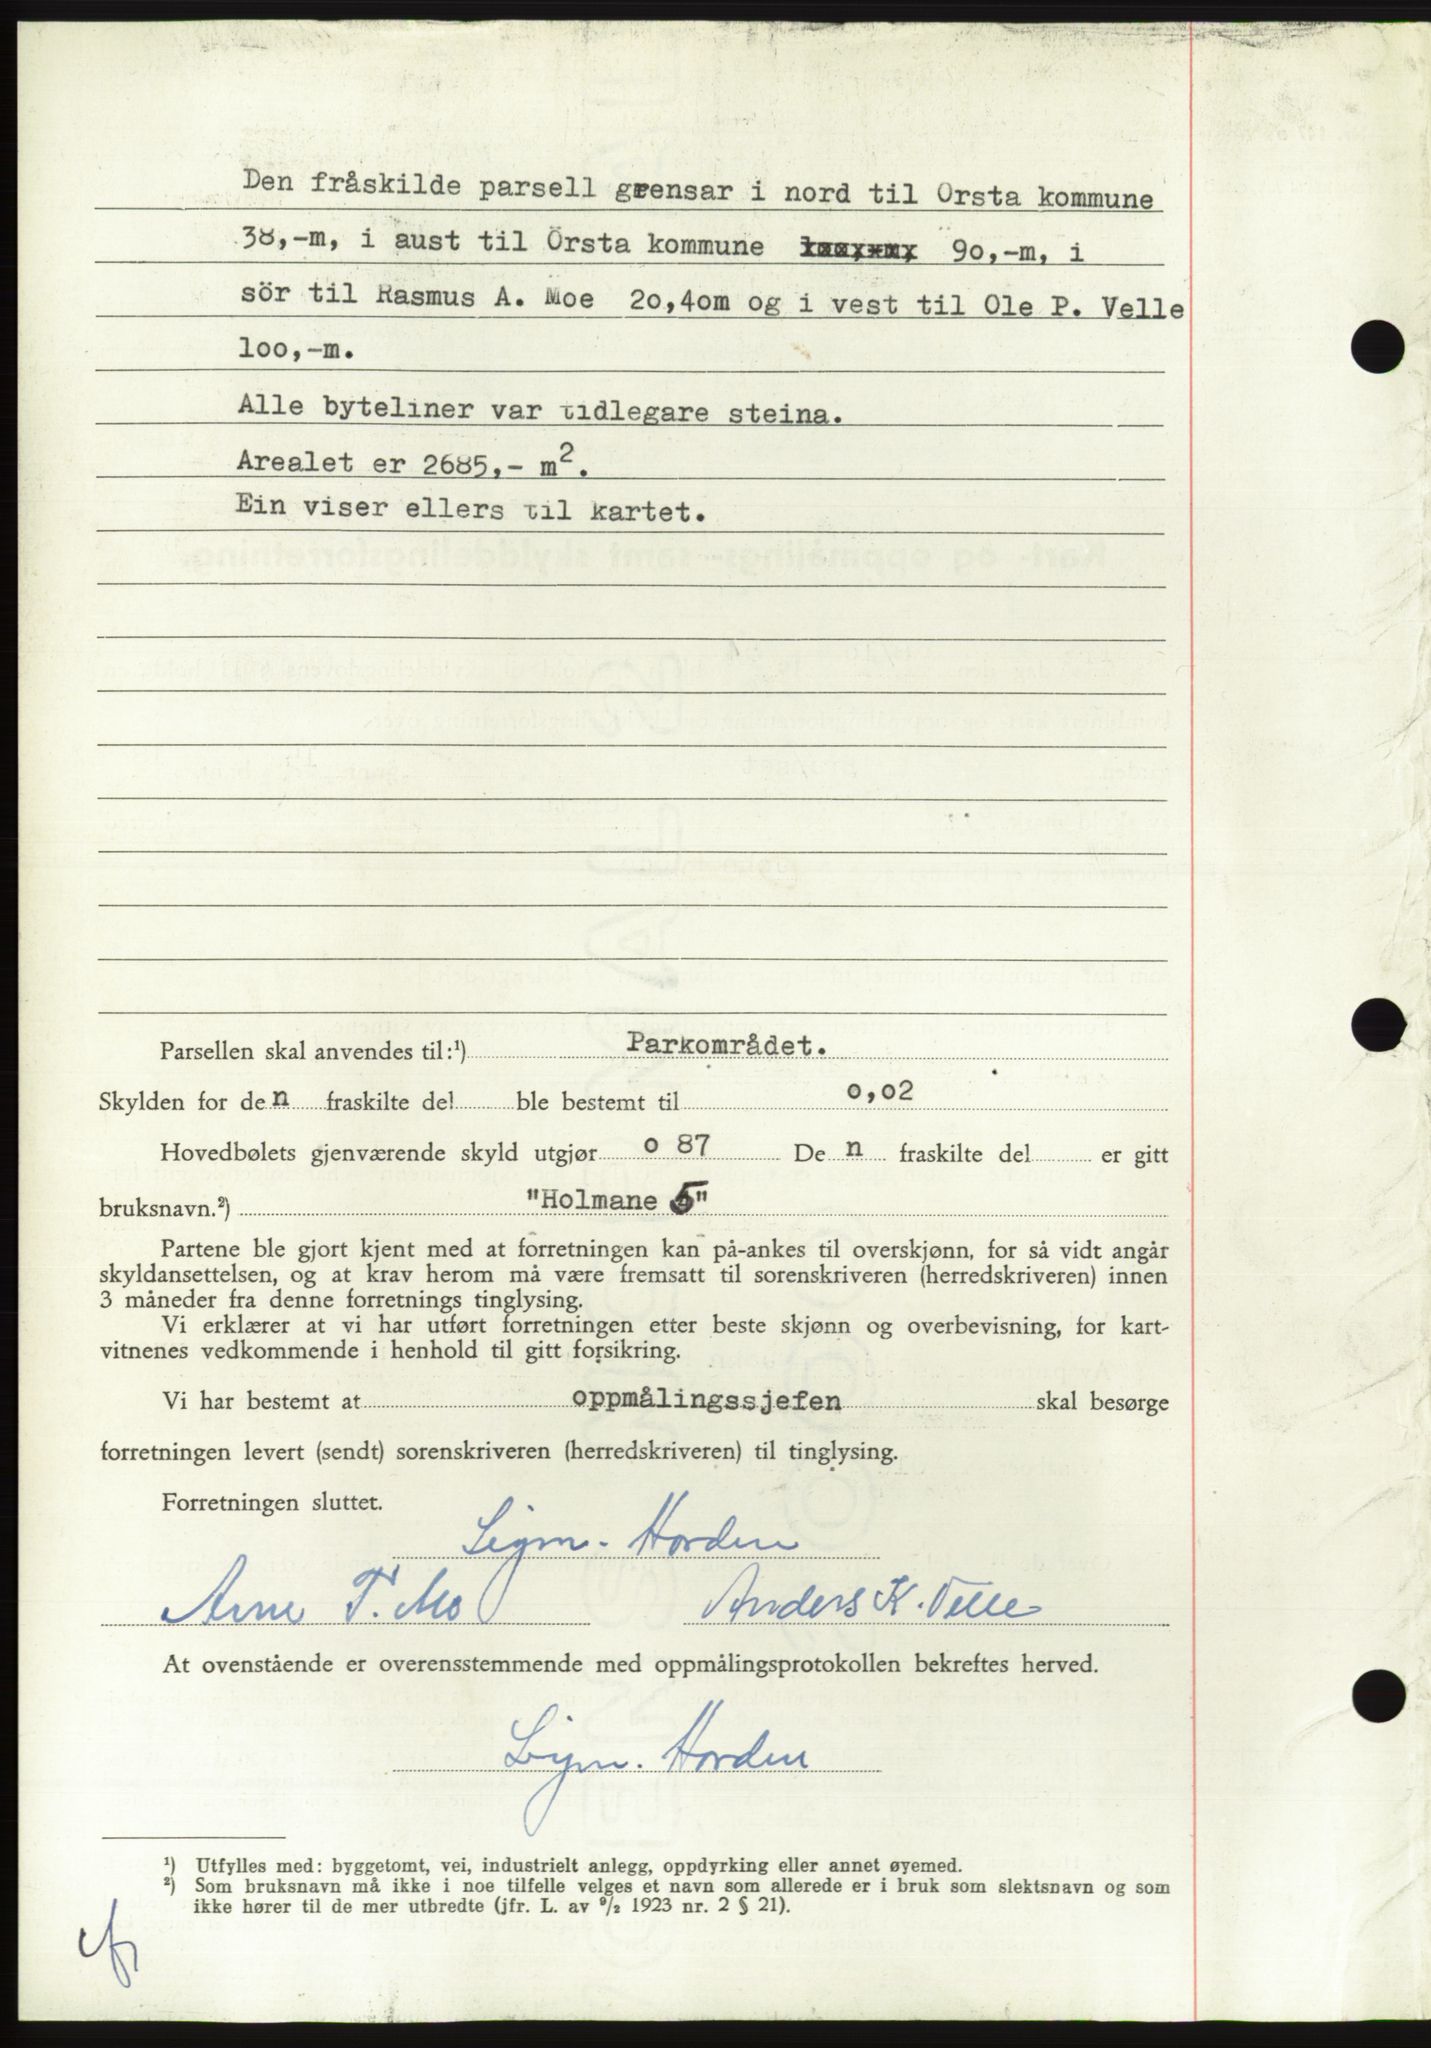 Den fråskilde parsell grensar i nord til Orsta kommune
38,-m, i aust til Orsta kommune 90,-m, i
sör til Rasmus A. Moe 20,40m og i vest til Ole P. Velle
100,-m.
Alle byteliner var tidlegare steina.
Arealet er 2685,- m².
Ein viser ellers til kartet.
Parsellen skal anvendes til:¹) Parkområdet.
Skylden for den fraskilte del ble bestemt til 0,02
Hovedbølets gjenværende skyld utgjør 0 87 Den fraskilte del er gitt
bruksnavn.²) "Holmane 5"
Partene ble gjort kjent med at forretningen kan på-ankes til overskjønn, for så vidt angår
skyldansettelsen, og at krav herom må være fremsatt til sorenskriveren (herredskriveren) innen
3 måneder fra denne forretnings tinglysing.
Vi erklærer at vi har utført forretningen etter beste skjønn og overbevisning, for kart-
vitnenes vedkommende i henhold til gitt forsikring.
Vi har bestemt at oppmålingssjefen skal besørge
forretningen levert (sendt) sorenskriveren (herredskriveren) til tinglysing.
Forretningen sluttet.
Sigm. Horden
Arne T. Mo Anders K. Velle
At ovenstående er overensstemmende med oppmålingsprotokollen bekreftes herved.
Sigm. Horden
¹) Utfylles med: byggetomt, vei, industrielt anlegg, oppdyrking eller annet øyemed.
²) Som bruksnavn må ikke i noe tilfelle velges et navn som allerede er i bruk som slektsnavn og som
ikke hører til de mer utbredte (jfr. L. av ⁹/₂ 1923 nr. 2 § 21).